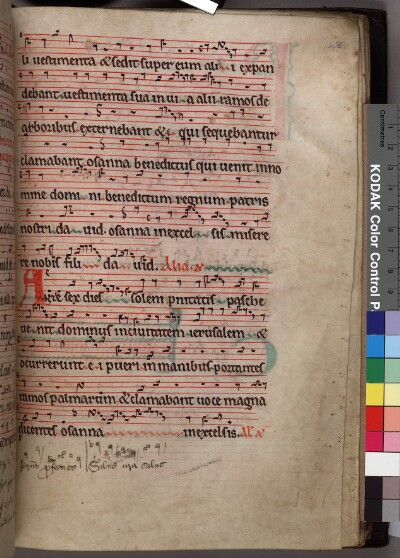 li uestimenta & sedit super eum ali i expan
debant uestimenta sua in uia alii ramos de
arboribus externebant & qui sequebantur
clamabant osanna benedictus qui uenit inno
mine domi ni benedictum regnum patris
nostri da uid osanna inexcel sis misere
re nobis fili da uid. Alia a
Ante sex dies solem pnitatis pasche
ue nit dominus in ciuitatem ierusalem &
occurrerunt e i pueri in manibus portantes
ramos palmarum & clamabant uoce magna
dicentes osanna inexcelsis.
Salus
48
Centimetres
KODAK Color Control P